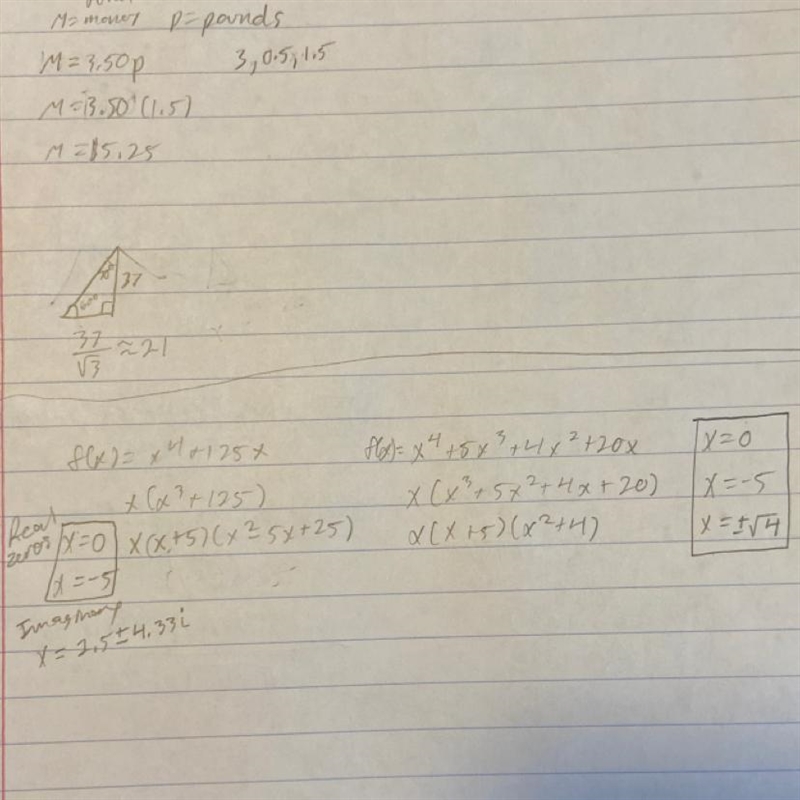 M=money p=pounds
M=3.50p 3,0.5,1.5
M=3.50(1.5)
M=$5.25
37
60°
37/√3 ≈21
f(x)= x⁴+125x
x(x³+125)
x(x+5)(x²-5x+25)
Real zeros
x=0
x=-5
Imaginary
x=2.5±4.33i
f(x)= x⁴+5x³+4x²+20x
x(x³+5x²+4x+20)
x(x+5)(x²+4)
x=0
x=-5
x=±√4